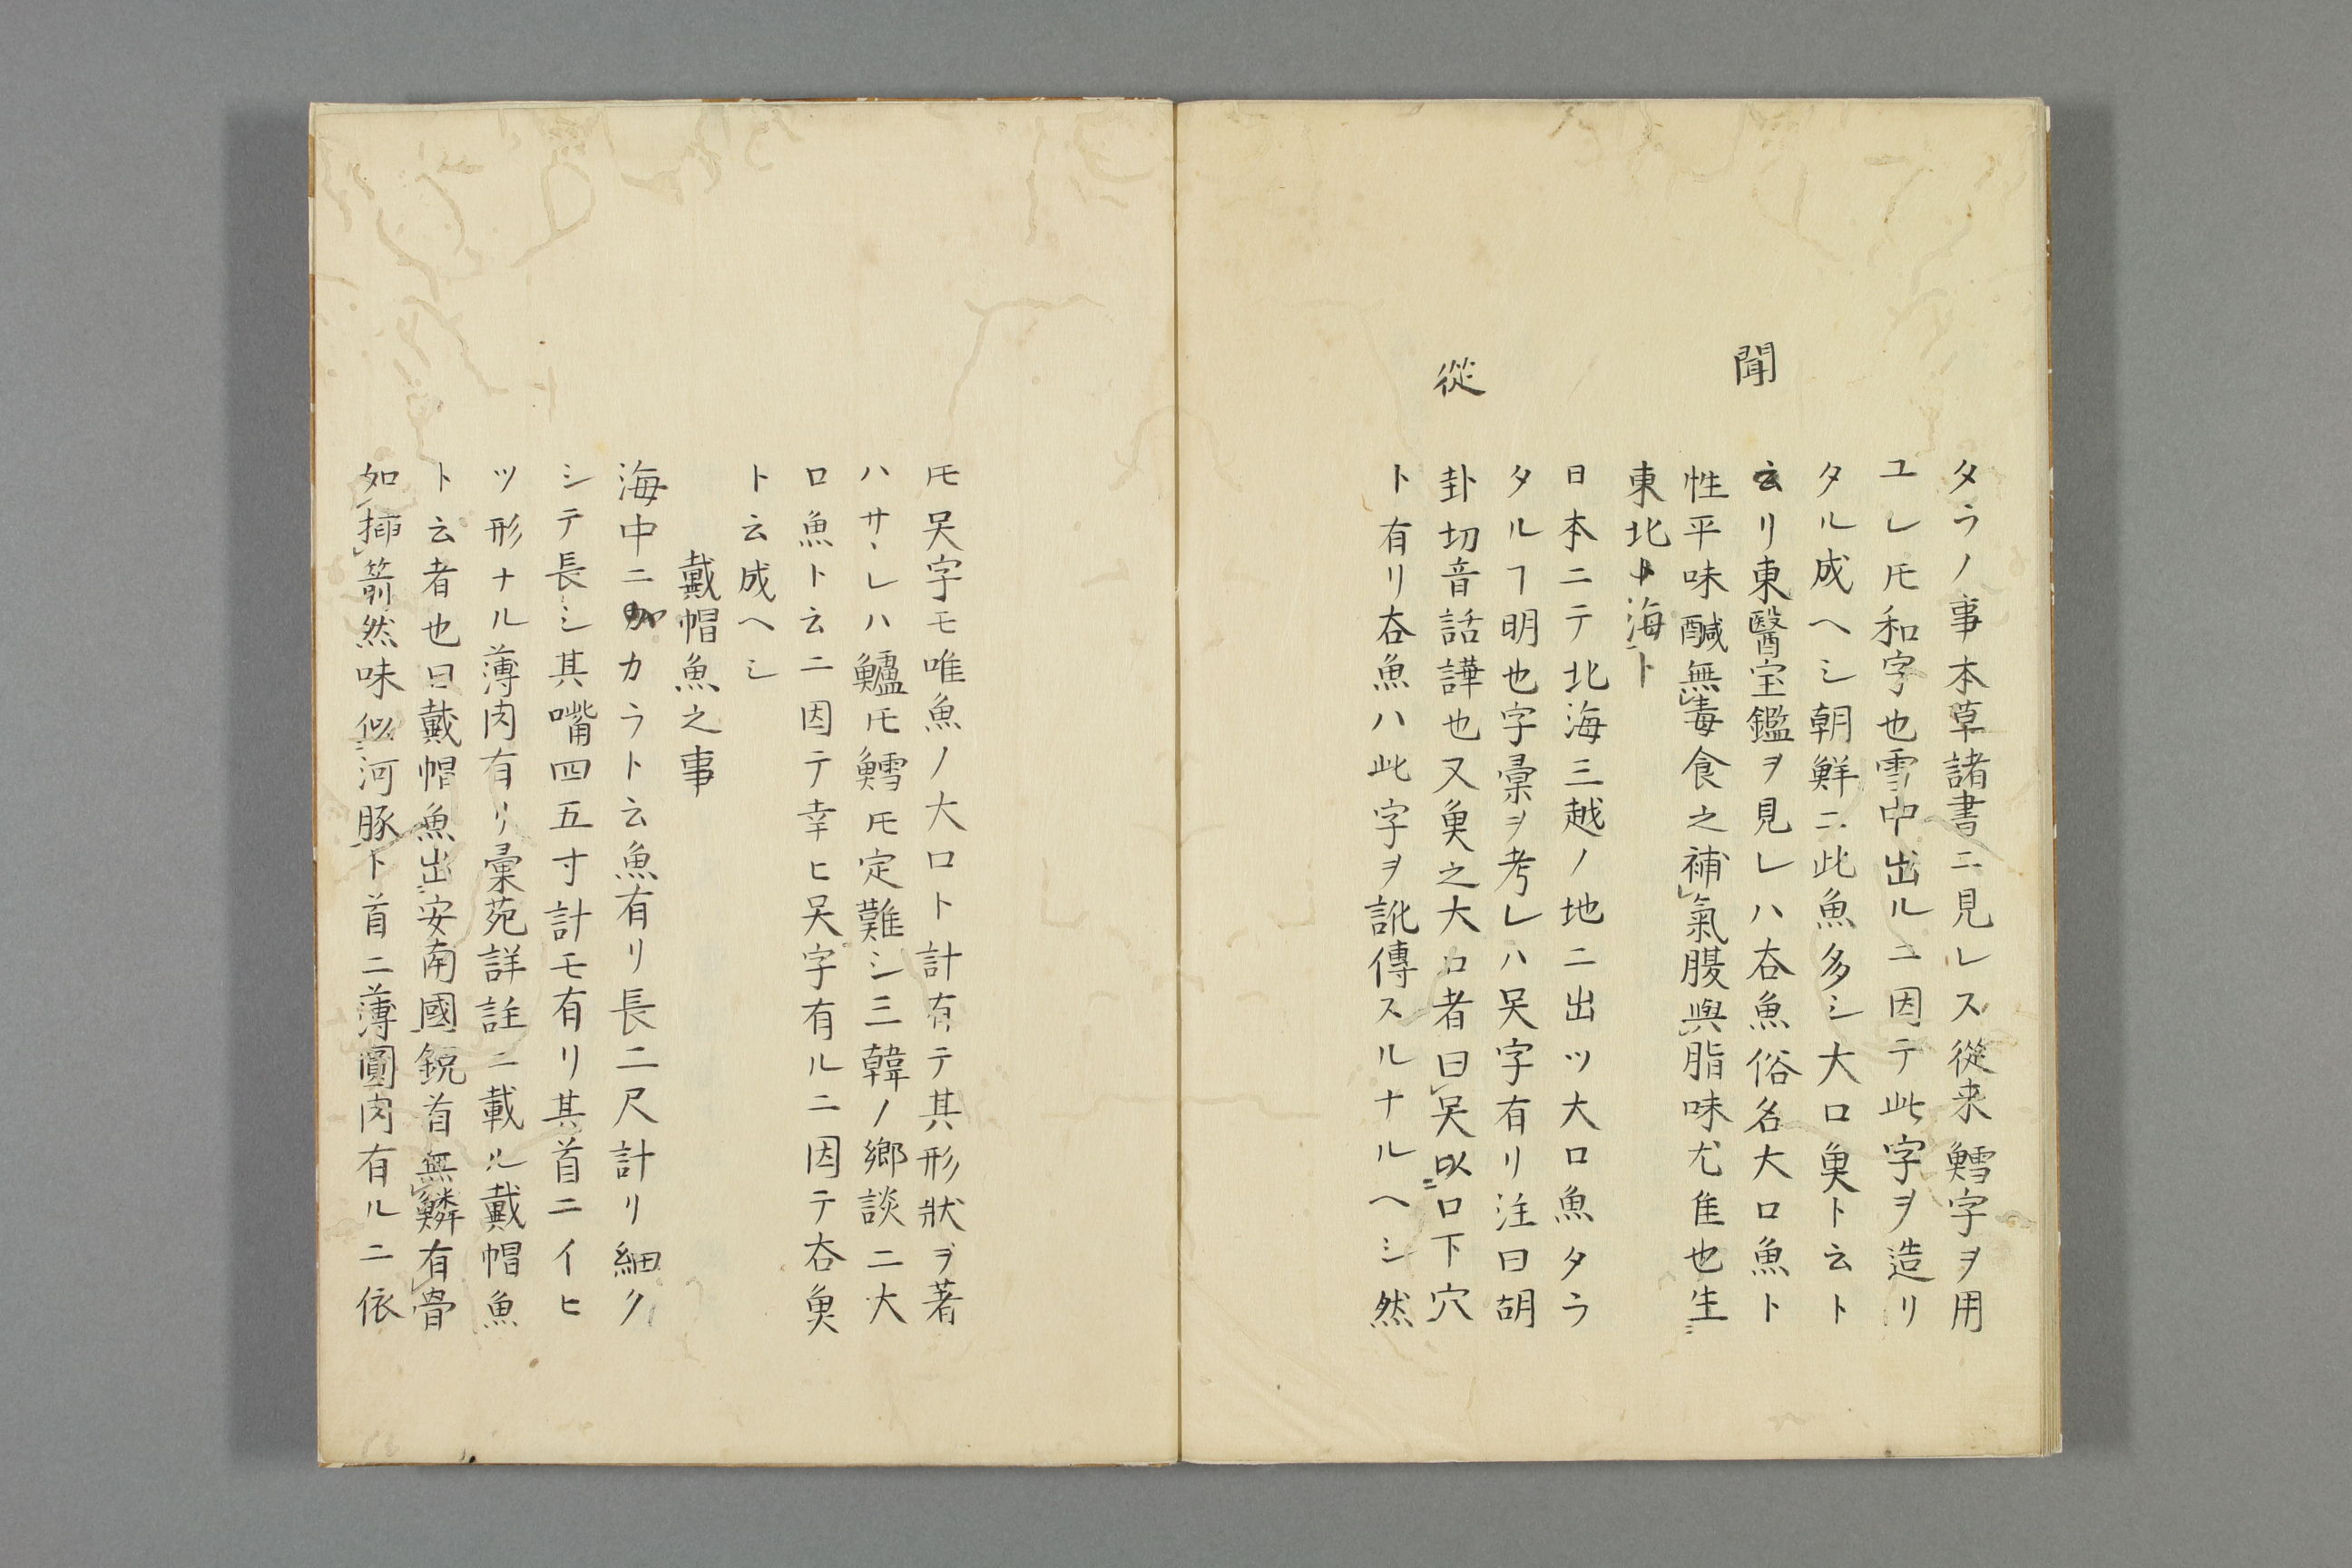 タラノ事本草諸書ニ見レス從来鱈字ヲ用
ユレ𪜈和字也雪中出ルニ因テ此字ヲ造リ
タル成ヘシ朝鮮ニ此魚多シ大口臭ト云ト
聞
云リ東醫宝鑑ヲ見レハ夻魚俗名大口魚ト
性平味醎無毒食之補氣腹與脂味尤隹也生
東北ト海ト
日本ニテ北海三越ノ地ニ出ツ大口魚タラ
タルヿ明也字彙ヲ考レハ㕦字有リ注曰胡
從
卦切音話譁也又臭之大口者曰㕦以口下穴
ト有リ夻魚ハ此字ヲ訛傳スルナルヘシ然
𪜈㕦字モ唯魚ノ大口ト計有テ其形狀ヲ著
ハサヽレハ鱸𪜈鱈𪜈定難シ三韓ノ郷談ニ大
口魚ト云ニ因テ幸ヒ㕦字有ルニ因テ夻臭
ト云成ヘシ
戴帽魚之事
海中ニカラト云魚有リ長二尺計リ細ク
シテ長シ其嘴四五寸計モ有リ其首ニイヒ
ツ形ナル薄肉有リ彙苑詳註ニ載ル戴帽魚
ト云者也曰戴帽魚出安南國鋭首無鱗有骨
如挿箭然味似河豚ト首ニ薄圓肉有ルニ依